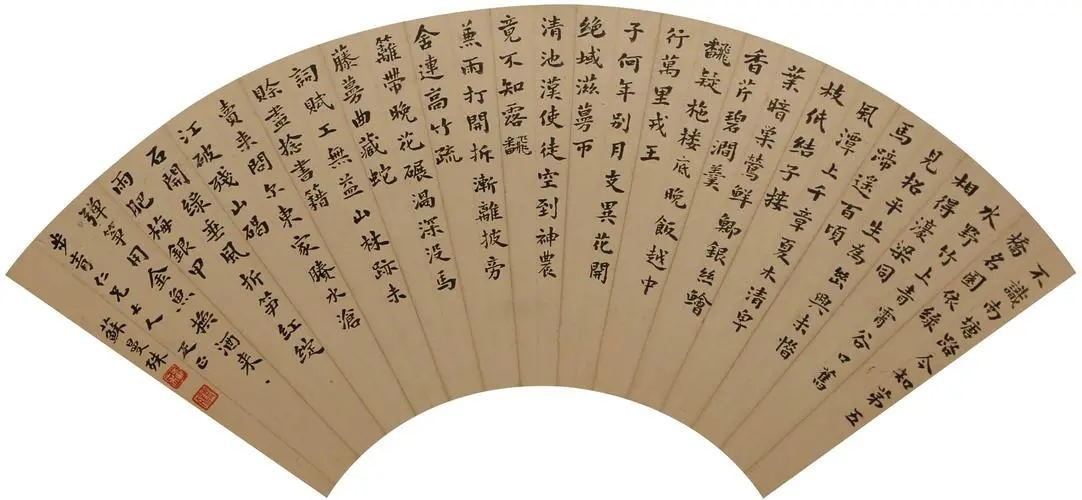 不識南塘路今知第五
橋名園依綠
水野竹上青霄谷口舊
相得濠梁同
見招平生為幽興未惜
馬蹄遙百頃
風潭上千章夏木清卑
枝低結子接
葉暗巢鶯鮮鯽銀絲鱠
香芹碧澗羹
飜疑柂樓底晚飯越中
行萬里戎王
子何年別月支異花開
絕域滋蔓帀
清池漢使徒空到神農
竟不知露飜
兼雨打開拆漸離披旁
舍連高竹疏
籬帶晚花碾渦深沒馬
藤蔓曲藏蛇
詞賦工無益山林跡未
賒盡捻書籍
賣來問尔東家賸水滄
江破殘山碣
石開綠垂風折笋紅綻
雨肥梅銀甲
彈箏用金魚換酒来
步青仁兄大人疋正
蘇曼殊